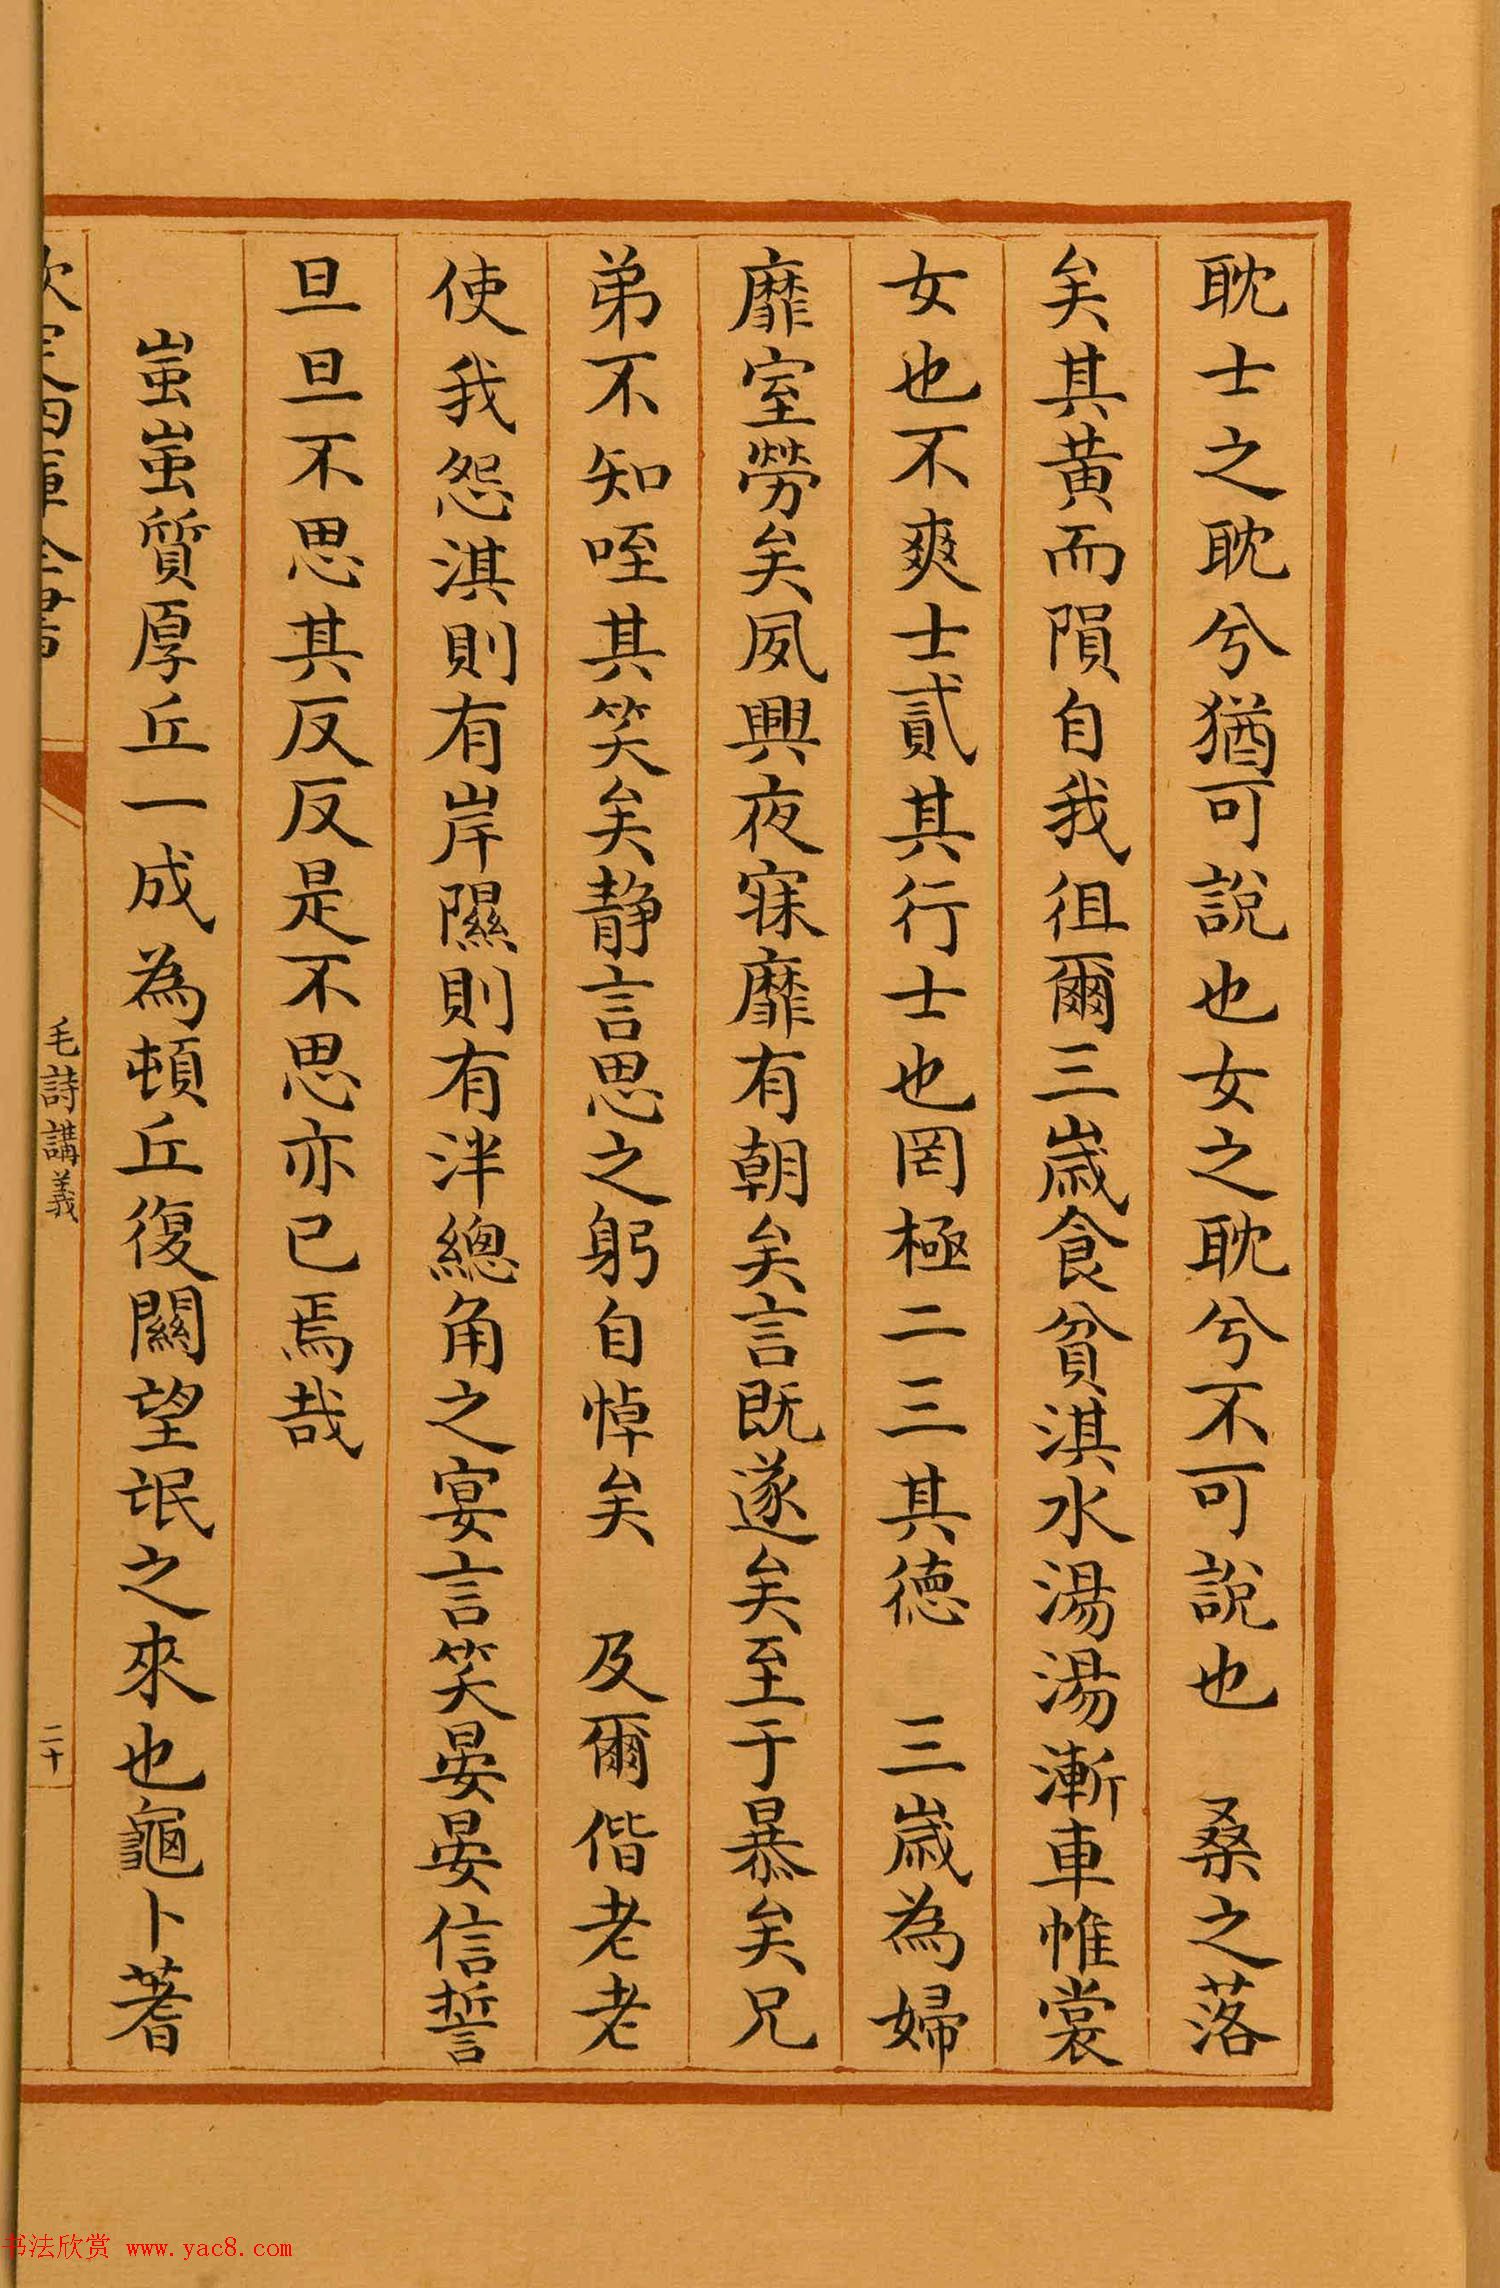 耽士之耽兮猶可說也女之耽兮不可說也　桑之落
矣其黃而隕自我徂爾三歲食貧淇水湯湯漸車帷裳
女也不爽士貳其行士也罔極二三其德　三歲為婦
靡室勞矣夙興夜寐靡有朝矣言既遂矣至于暴矣兄
弟不知咥其笑矣靜言思之躬自悼矣　及爾偕老老
使我怨淇則有岸隰則有泮總角之宴言笑晏晏信誓
旦旦不思其反反是不思亦已焉哉
蚩蚩質厚丘一成為頓丘復關望氓之來也龜卜蓍
欽定四庫全書
毛詩講義
二十
书法欣赏 www.yac8.com